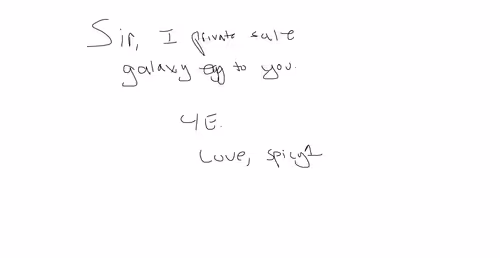 Sir, I private sale
galaxy egg to you.
4E.
Love, spicy1